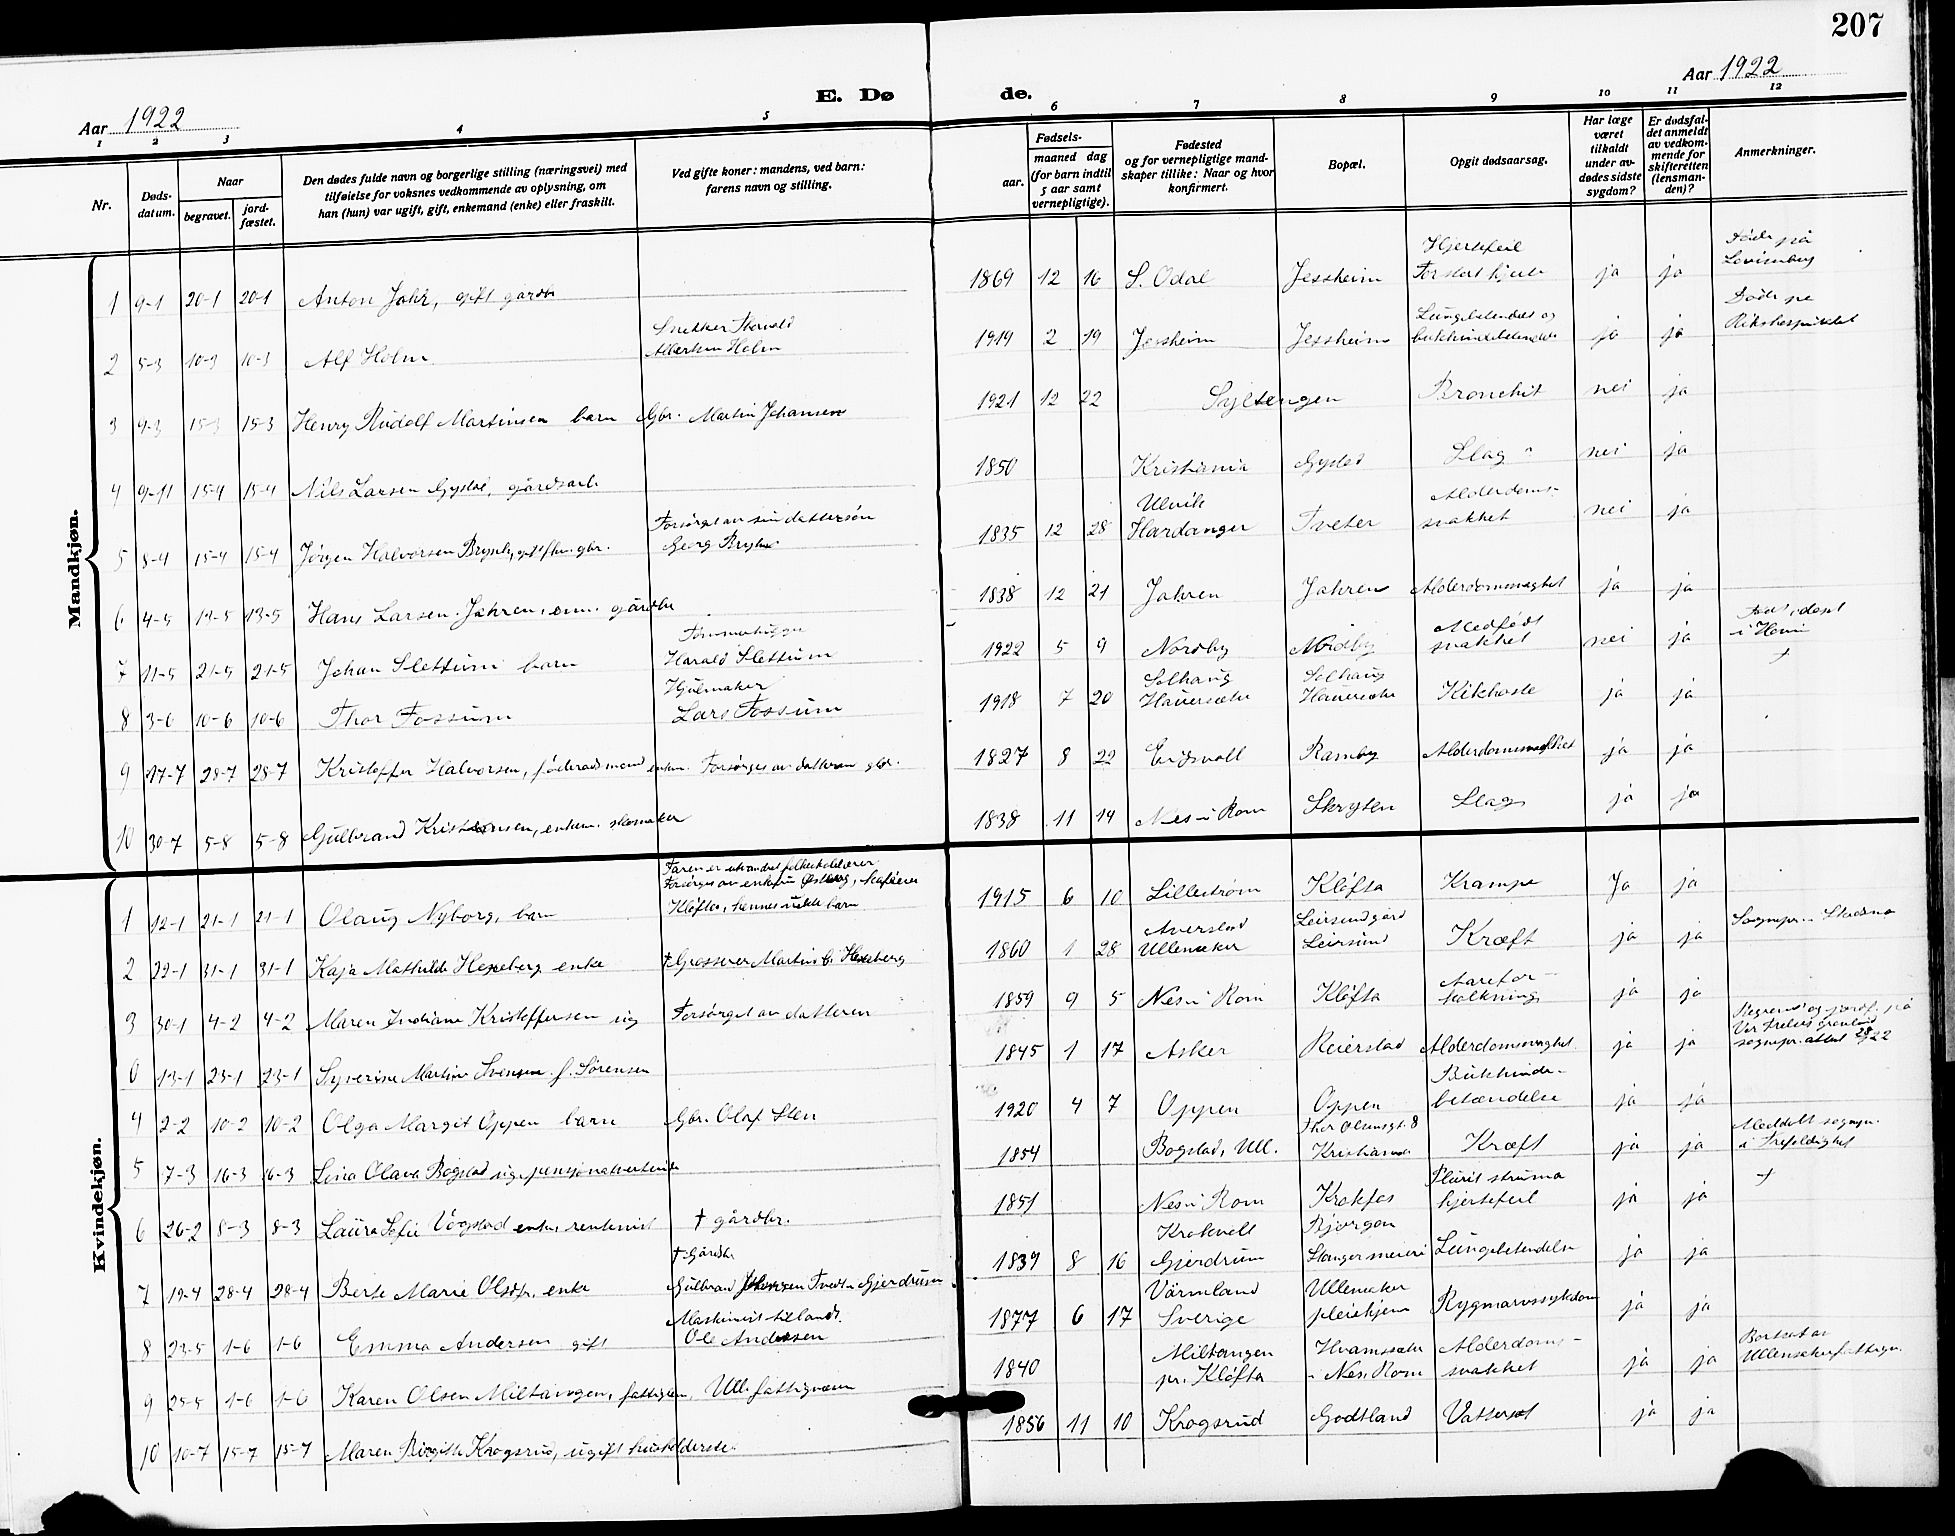 207
Aar 1922
E. Dø
de.
Aar 1922
1 2 3 4 5 6 7 8 9 10 11 12
Nr.
Døds-
datum.
Naar
begravet.
jord-
fæstet.
Den dødes fulde navn og borgerlige stilling (næringsvei) med
tilføielse for voksnes vedkommende av oplysning, om
han (hun) var ugift, gift, enkemand (enke) eller fraskilt.
Ved gifte koner: mandens, ved barn:
farens navn og stilling.
Fødsels-
aar.
maaned dag
(for barn indtil
5 aar samt
vernepligtige).
Fødested
og for vernepligtige mand-
skaper tillike: Naar og hvor
konfirmert.
Bopæl.
Opgit dødsaarsag.
Har læge
været
tilkaldt
under av-
dødes sidste
sygdom?
Er dødsfal-
det anmeldt
av vedkom-
mende for
skifteretten
(lensman-
den)?
Anmerkninger.
Mandkjøn.
1 9-1 20-1 20-1 Anton Jahr, gift gardbr 1869 12 16 S. Odal Jessheim Hjertefeil ja ja Døde på
2 5-3 10-3 10-3 Alf Holm Snekker Albertsen Holm 1919 2 19 Jessheim Jessheim Lungebetendelse og ja ja Døde pa Rikshospitalet
3 9-3 15-3 15-3 Henry Rudolf Martinsen barn Gbr. Martin Johansen 1921 12 22 Syltengen Bronchit nei ja
4 9-11 15-4 15-4 Nils Larsen gårdsarb 1850 Kristiania Slag nei ja
5 8-4 15-4 15-4 Jørgen Halvorsen Forsørget av sin dattersøn Georg 1835 12 28 Ulvik Hardanger Tveter Alderdoms-
svakhet nei ja
6 4-5 13-5 13-5 Hans Larsen Jahren, enm. gårdbr 1838 12 21 Jahren Jahren Alderdomssvaghet ja ja
7 11-5 21-5 21-5 Johan Slettum barn Tømmerhugger Harald Slettum 1922 5 9 Nordby Nordby Medfødt
svakhet nei ja
8 3-6 10-6 10-6 Thor Fossum Hjulmaker Lars Fossum 1918 7 20 Solhaug Hauersæter Solhaug Hauersæter Kikhoste ja ja
9 17-7 28-7 28-7 Kristoffer Halvorsen, føderaadsmand enkem. Forsørges av datteren gbr. 1827 8 22 Eidsvoll Ramby Alderdomssvakhet ja ja
10 30-7 5-8 5-8 Gulbrand Kristiansen, enkem. skomaker 1838 11 14 Nes i Rom Skrysten Slag ja ja
Kvindekjøn.
1 12-1 21-1 21-1 Olaug Nyborg, barn Faren er utvandret Forsørges av enkefru Østberg, Kløfta, hennes 1915 6 10 Lillestrøm Kløfta Krampe Ja ja
2 22-1 31-1 31-1 Kaja Mathilde Hexeberg enke † Grosserer Martin G. Hexeberg 1860 1 28 Averstad Ullensaker Leirsundgård Leirsund Kræft ja ja Sognepr. i Skedsmo
3 30-1 4-2 4-2 Maren Indiane Kristoffersen ug Forsørget av datteren 1859 9 5 Nes i Rom Kløfta Aarefor-
kalkning ja ja
0 13-1 23-1 23-1 Syverine Martine Svensen f. Sørensen 1845 1 17 Asker Reierstad Alderdomssvaghet ja ja Begravet og jordf. på Vår Frelsers gravlund
4 2-2 10-2 10-2 Olga Margit Oppen barn Gbr. Olaf Sten 1920 4 7 Oppen Oppen Bukhinde-
betændelse ja ja
5 7-3 16-3 16-3 Lina Olava Bogstad ug. pensjonatvertinde 1854 Bogstad, Ull. Thor Olsensgt. 8 Kristiania Kræft ja ja Meddelt sognepr. i Trefoldighet
6 26-2 8-3 8-3 Laura Sofie Vogstad enke, rentenist † gårdbr. 1851 Nes i Rom Krokfos Plurit struma
hjertefeil ja ja †
7 19-4 28-4 28-4 Berte Marie Olsdtr. enke † Gårdbr. Gulbrand Tvedte Gjerdrum 1839 8 16 Krokvoll Gjerdrum Bjørgen Stangermeieri Lungebetendelse ja ja
8 23-5 1-6 1-6 Emma Andersen gift Maskinist tillands. Ole Andersen 1877 6 17 Värmland Sverige Ullensaker pleiehjem Rygmarvssykdom ja ja
9 25-5 1-6 1-6 Karen Olsen Miltvangen, fattiglem, Ull. fattigvæsen 1840 Miltvangen pr. Kløfta Hvamssæter i Nes, Rom Alderdoms-
svakhet ja ja Bortsat av Ullensaker fattigv.
10 10-7 15-7 15-7 Maren Birgitte Krogsrud, ugift husholderske 1856 11 10 Krogsrud Godtland Vattersot ja ja